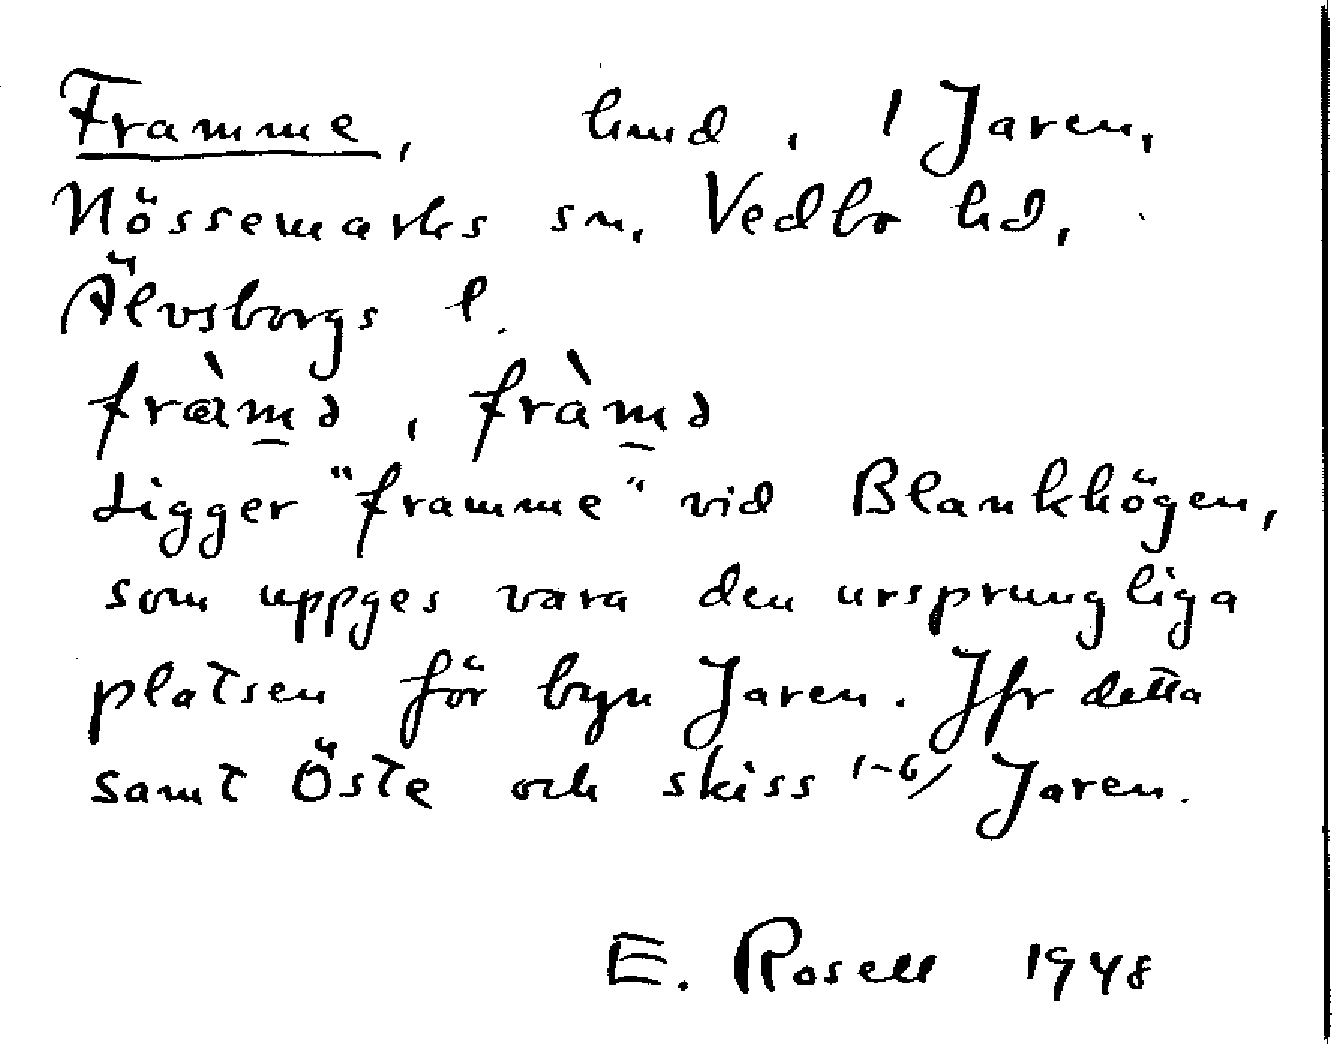 Framme, hmd, 1 Jaren,
Nössemarks sn, Vedbo hd,
Älvsborgs l.
fràm̲ə, fràm̲ə
Ligger "framme" vid Blankhögen,
som uppges vara den ursprungliga
platsen för byn Jaren. Jfr detta
samt Öste och skiss 1-6/ Jaren.
E. Rosell 1948